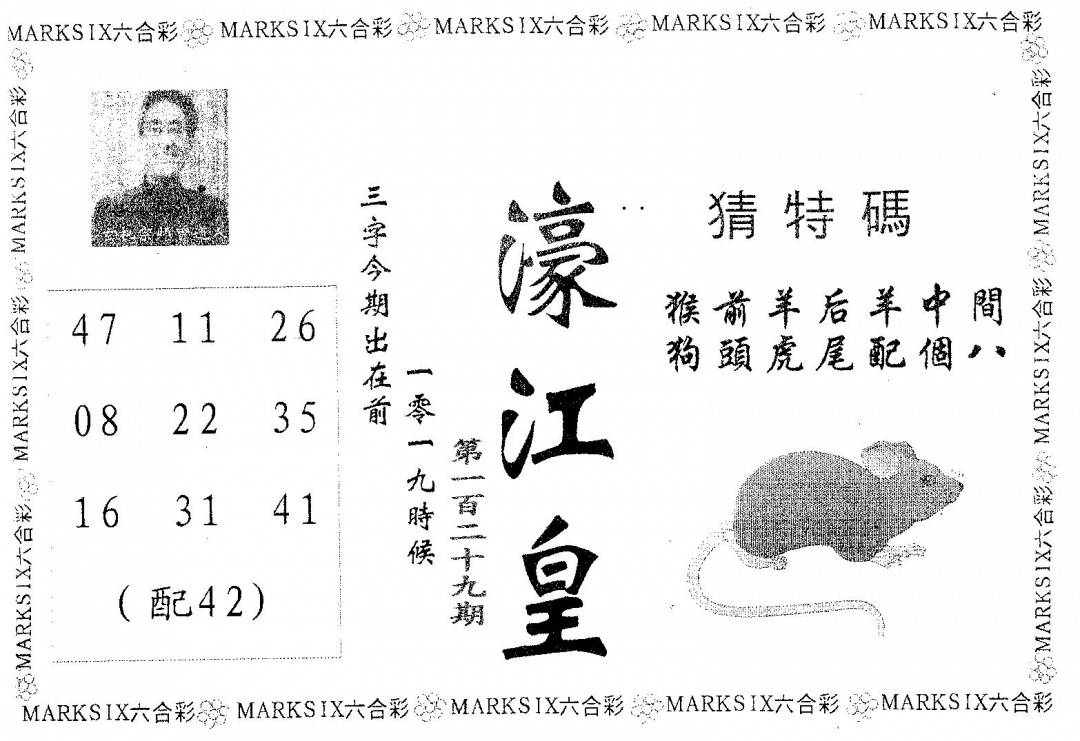 MARKSIX六合彩 MARKSIX六合彩 MARKSIX六合彩 MARKSIX六合彩 MARKSIX六合彩
MARKSIX六合彩
MARKSIX六合彩
MARKSIX六合彩
47 11 26
08 22 35
16 31 41
(配42)
三字今期出在前
一零一九時候
第一百二十九期
濠江皇
猜特碼
猴前羊后羊中間
狗頭虎尾配個八
MARKSIX六合彩
MARKSIX六合彩
MARKSIX六合彩
MARKSIX六合彩 MARKSIX六合彩 MARKSIX六合彩 MARKSIX六合彩 MARKSIX六合彩